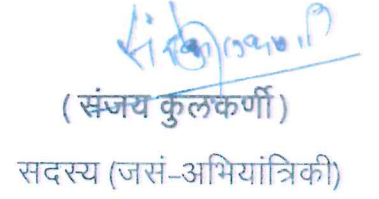 (संजय कुलकर्णी)
सदस्य (जसं-अभियांत्रिकी)